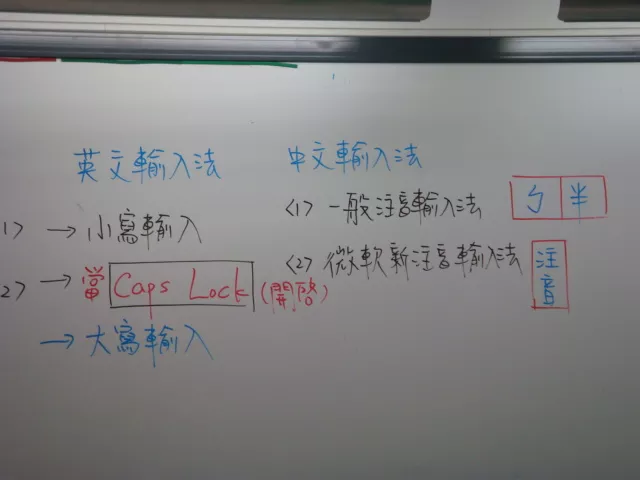 英文輸入法
1> → 小寫輸入
2> → 當 Caps Lock (開啓)
→ 大寫輸入
中文輸入法
<1> 一般注音輸入法 ㄅ 半
<2> 微軟新注音輸入法 注音